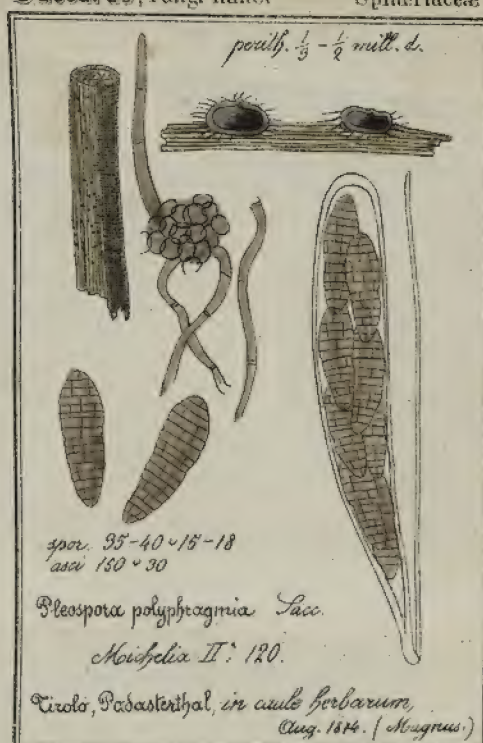 Saccardo, Fungi italici Sphæriaceæ
perith. 1/3 - 1/2 mill. d.
spor. 35-40 ⌣ 15-18
asci 150 ⌣ 30
Pleospora polyphragmia Sacc.
Michelia II: 120.
Tirolo, Padasterthal, in caule herbarum,
Aug. 1874. (Magnus.)